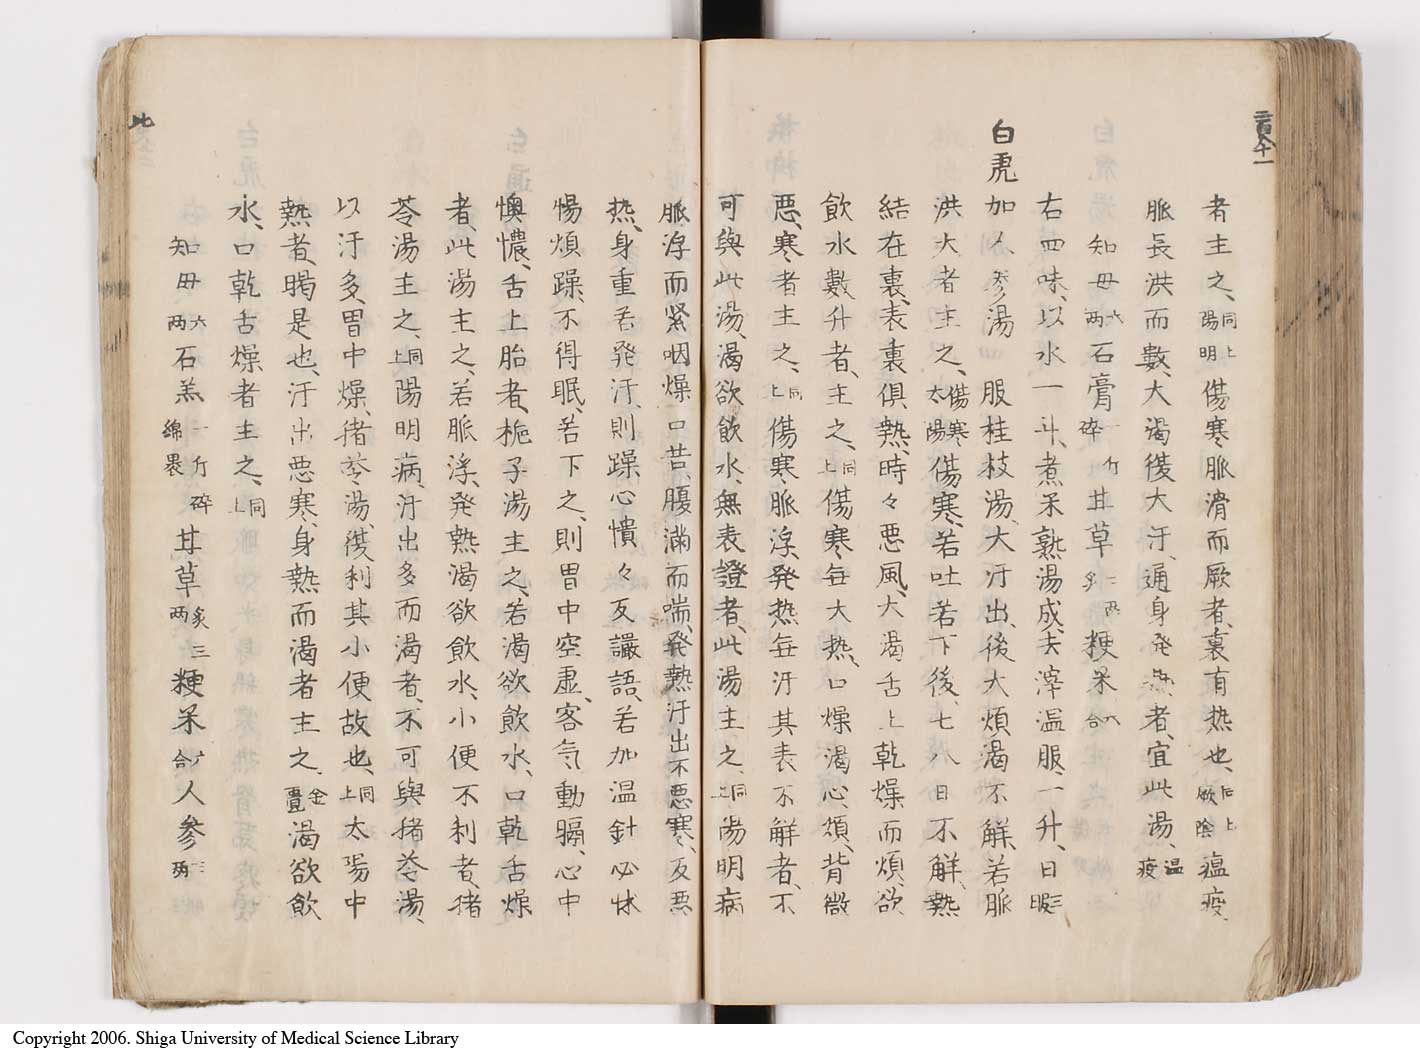 者主之、同上陽明傷寒脈滑而厥者、裏有热也、同上厥陰瘟疫、
脈長洪而數、大渴復大汗、通身発热者、宜此湯、温疫
知母六両石膏一斤碎甘草二両炙粳米六合
右四味、以水一斗、煮米熟湯成、去滓温服、一升、日三服
白虎加人参湯 服桂枝湯、大汗出、後大煩渴不解、若脈
洪大者主之、傷寒太陽傷寒、若吐若下後、七八日不解、熱
結在裏、表裏俱熱、時々悪風、大渴舌上乾燥而煩、欲
飲水數升者、主之、同上傷寒每大热、口燥渴心、煩、背微
悪、寒者主之、同上傷寒脈浮、発热每汗其表不解者、不
可與此湯、渴欲飲水、無表證者、此湯主之、同上陽明病
脈浮而緊咽燥口苦、腹滿而喘、発熱汗出不悪寒、反悪
热、身重若発汗、則躁心憒々反讝語、若加温針必怵
惕煩躁、不得眠、若下之、則胃中空虚、客気動膈、心中
懊憹、舌上胎者、梔子湯主之、若渴欲飲水、口乾舌燥
者、此湯主之、若脈浮、発熱渴欲飲水、小便不利者、猪
苓湯主之、同上陽明病、汗出多而渴者、不可與猪苓湯、
以汗多、胃中燥、猪苓湯、復利其小便故也、同上太陽中
熱者、暍是也、汗出悪寒、身熱而渴者主之、金匱渴欲飲
水、口乾舌燥者主之、同上
知母六両石羔一斤碎綿裹甘草炙三両粳米六合人参三両